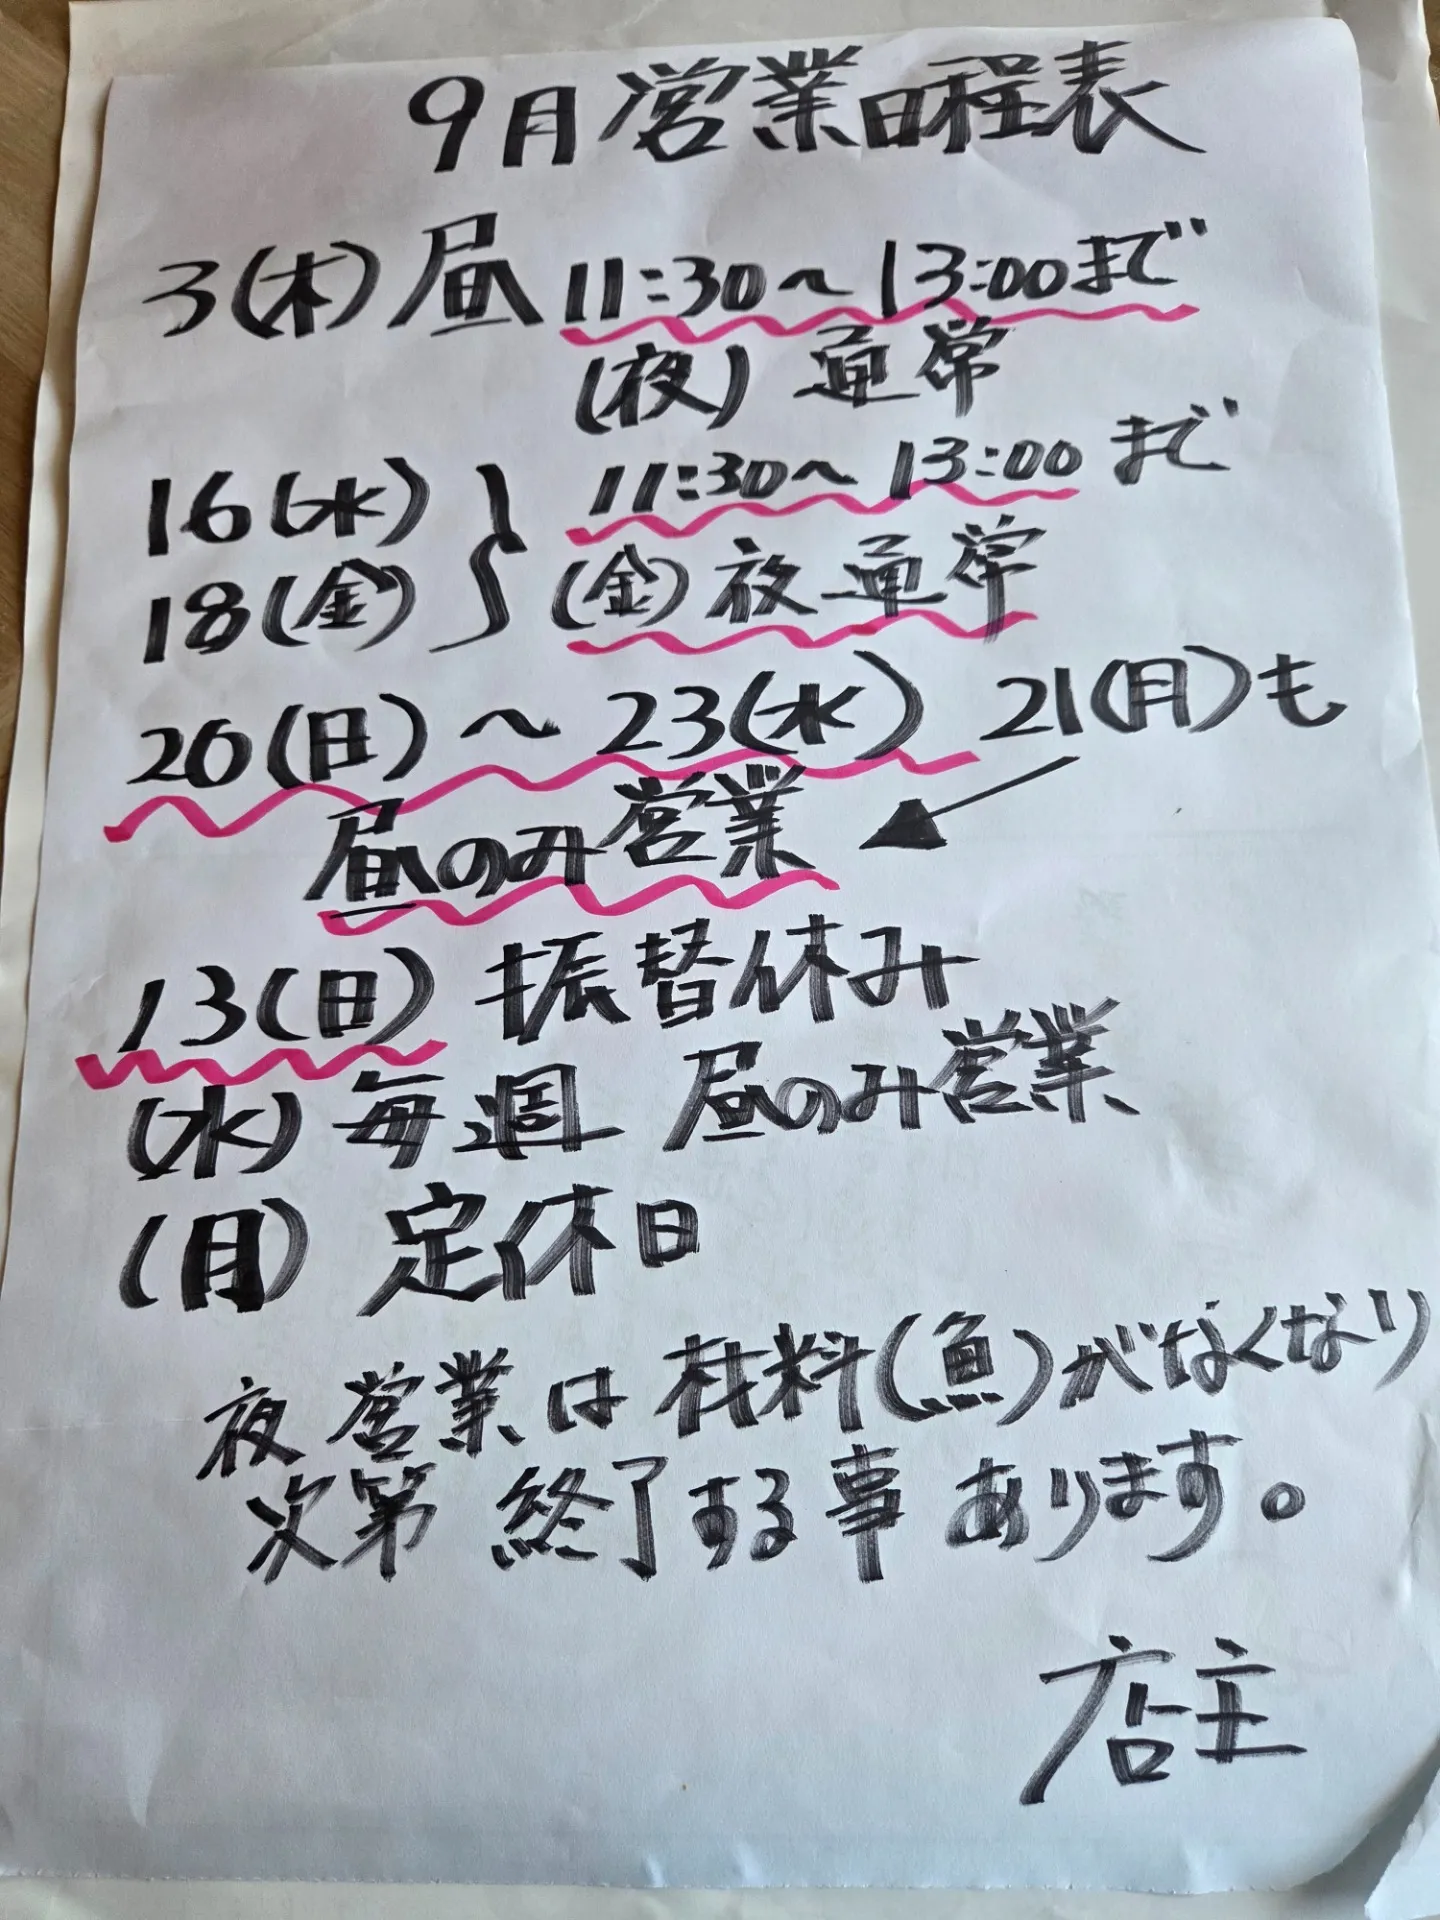 9月営業日程表
3(木)昼 11:30〜13:00まで
(夜) 通常
16(水) 11:30〜13:00 まで
18(金) (金)夜通常
20(日)〜23(水) 21(月)も
昼のみ営業
13(日) 振替休み
(水) 毎週 昼のみ営業
(月) 定休日
夜営業は材料(魚)がなくなり
次第 終了する事 あります。
店主